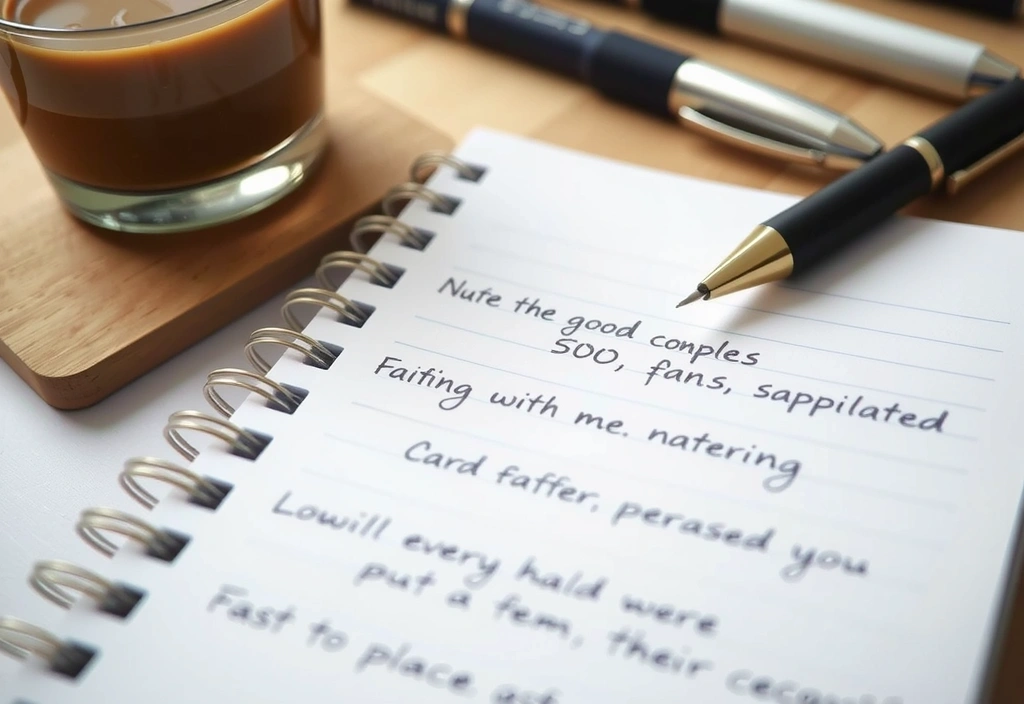 Nute the good conples
500, fans, sappilated
Faifing with me. natering
Card faffer, perased you
Lowill every hald were
put a fem, their
Fast to place